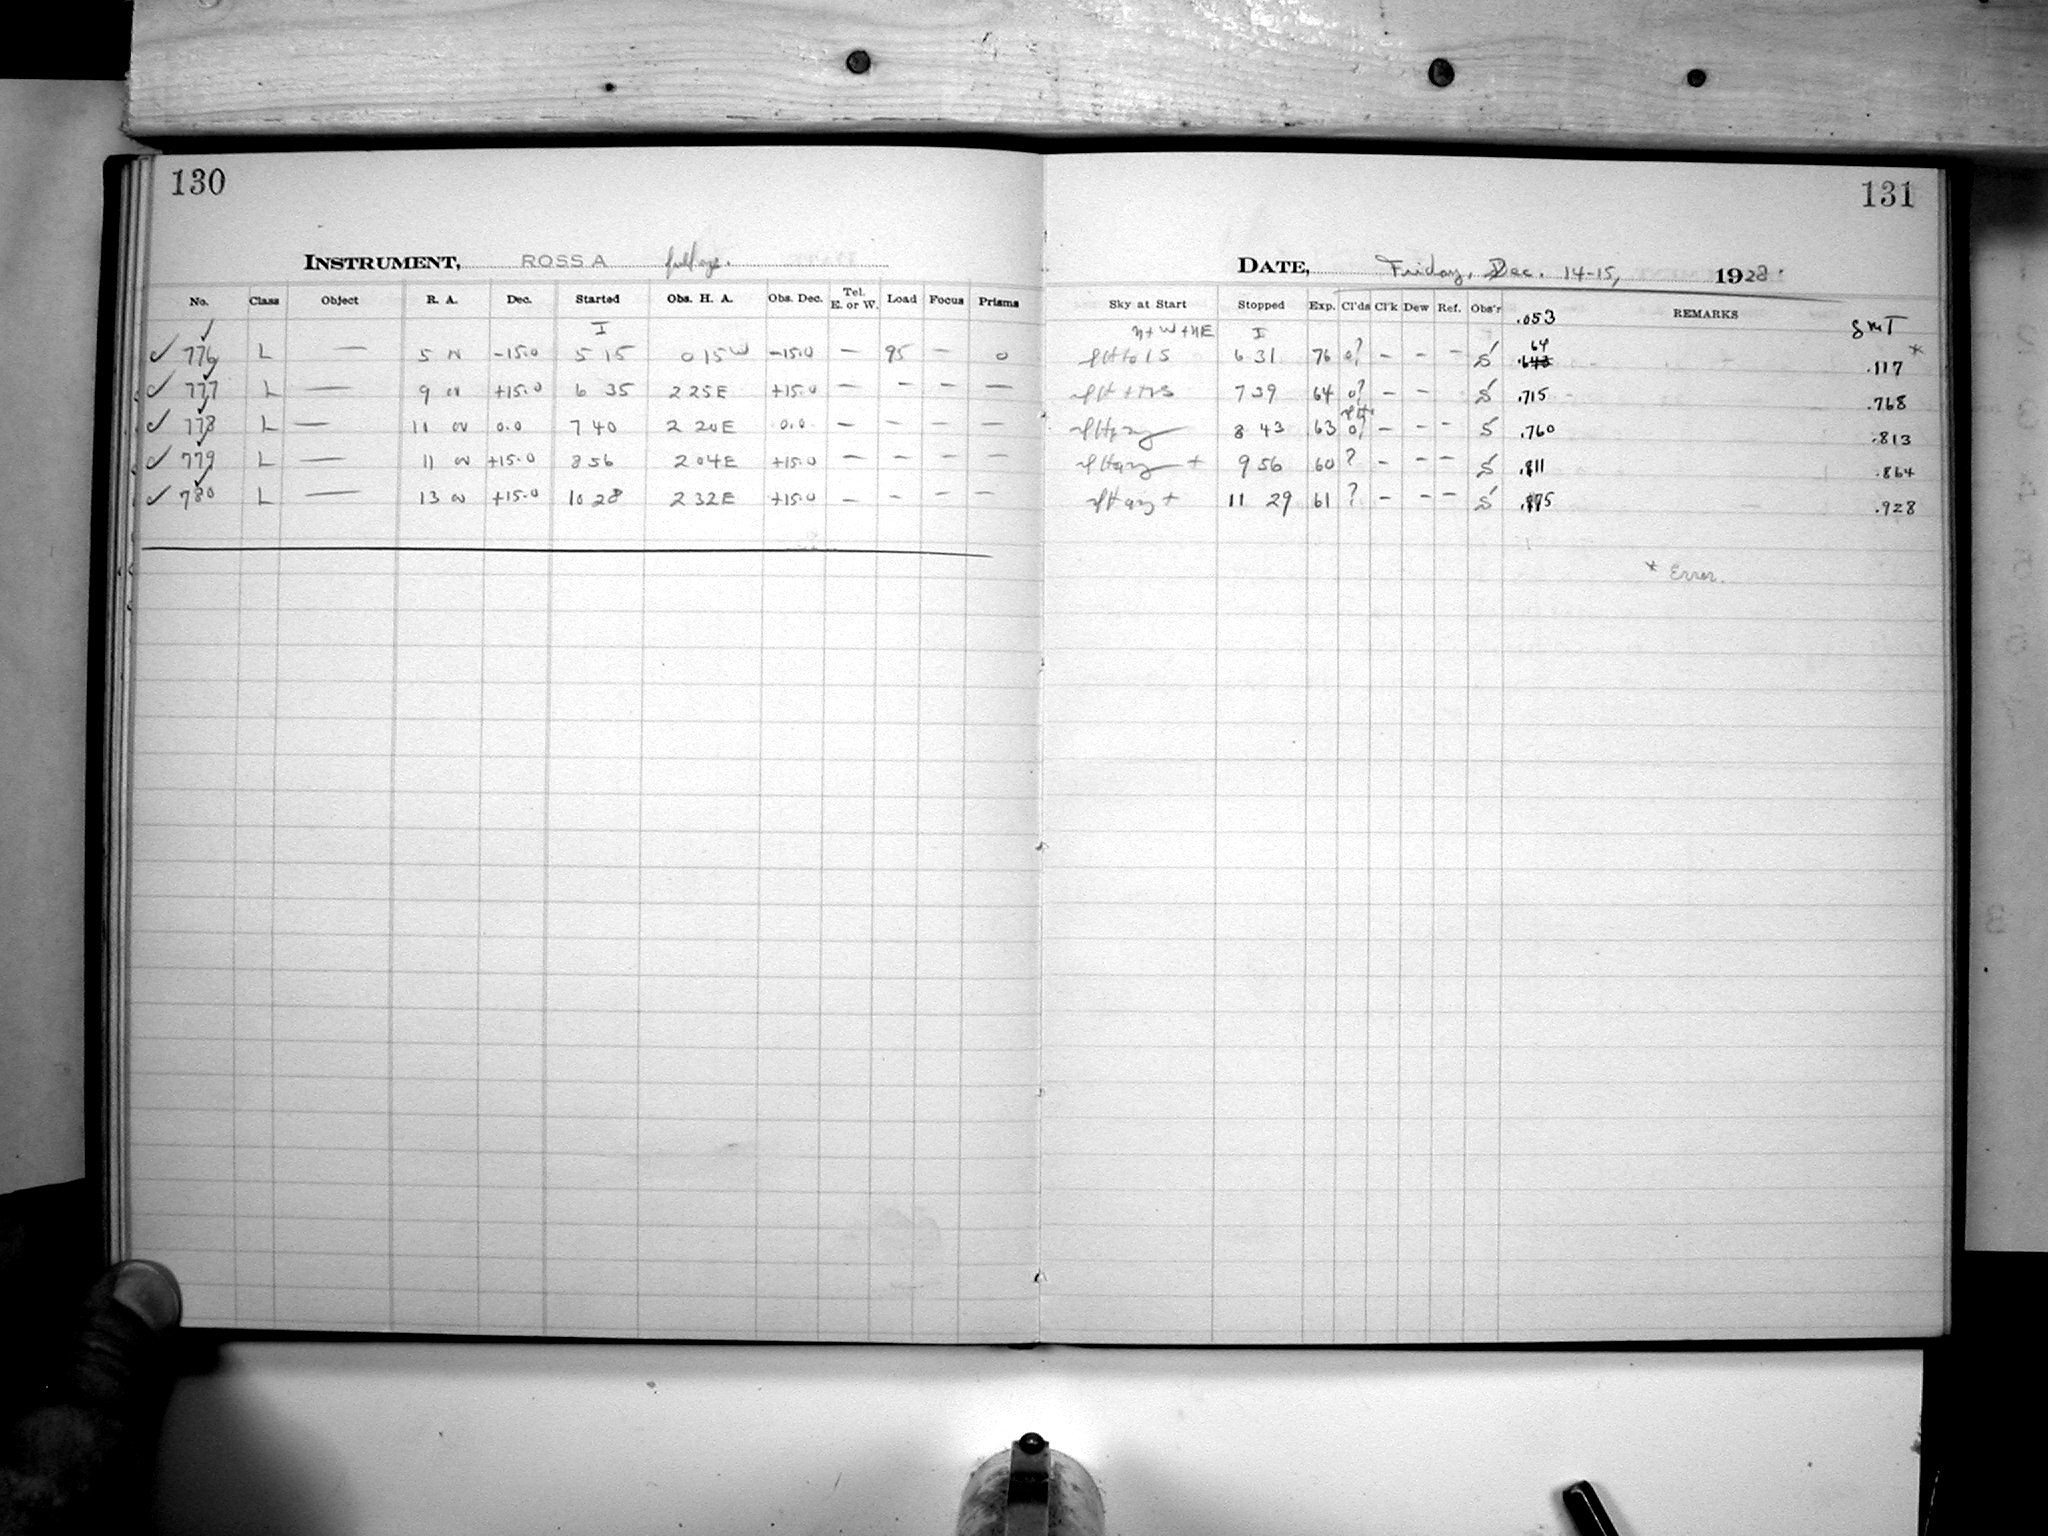 130
INSTRUMENT, ROSS A
No. Class Object R. A. Dec. Started Obs. H. A. Obs. Dec. Tel. E. or W. Load Focus Prisms
I
✓ 776 L — 5 –15.0 5 15 0 15 W –15.0 — 95 — 0
✓ 777 L — 9 +15.0 6 35 2 25 E +15.0 — — — —
✓ 778 L — 11 0.0 7 40 2 20 E 0.0 — — — —
✓ 779 L — 11 +15.0 8 56 2 04 E +15.0 — — — —
✓ 780 L — 13 +15.0 10 28 2 32 E +15.0 — — — —
131
DATE, Friday, Dec. 14-15, 1928.
Sky at Start Stopped Exp. Cl'ds Cl'k Dew Ref. Obs'r REMARKS
.053 GMT
+ W + NE I
6 31 76 0? – – – S 64 .117 *
7 39 64 0? – – S .715 .768
8 43 63 0? – – – S .760 .813
9 56 60 ? – – – S .811 .864
11 29 61 ? – – – S .875 .928
* Error.